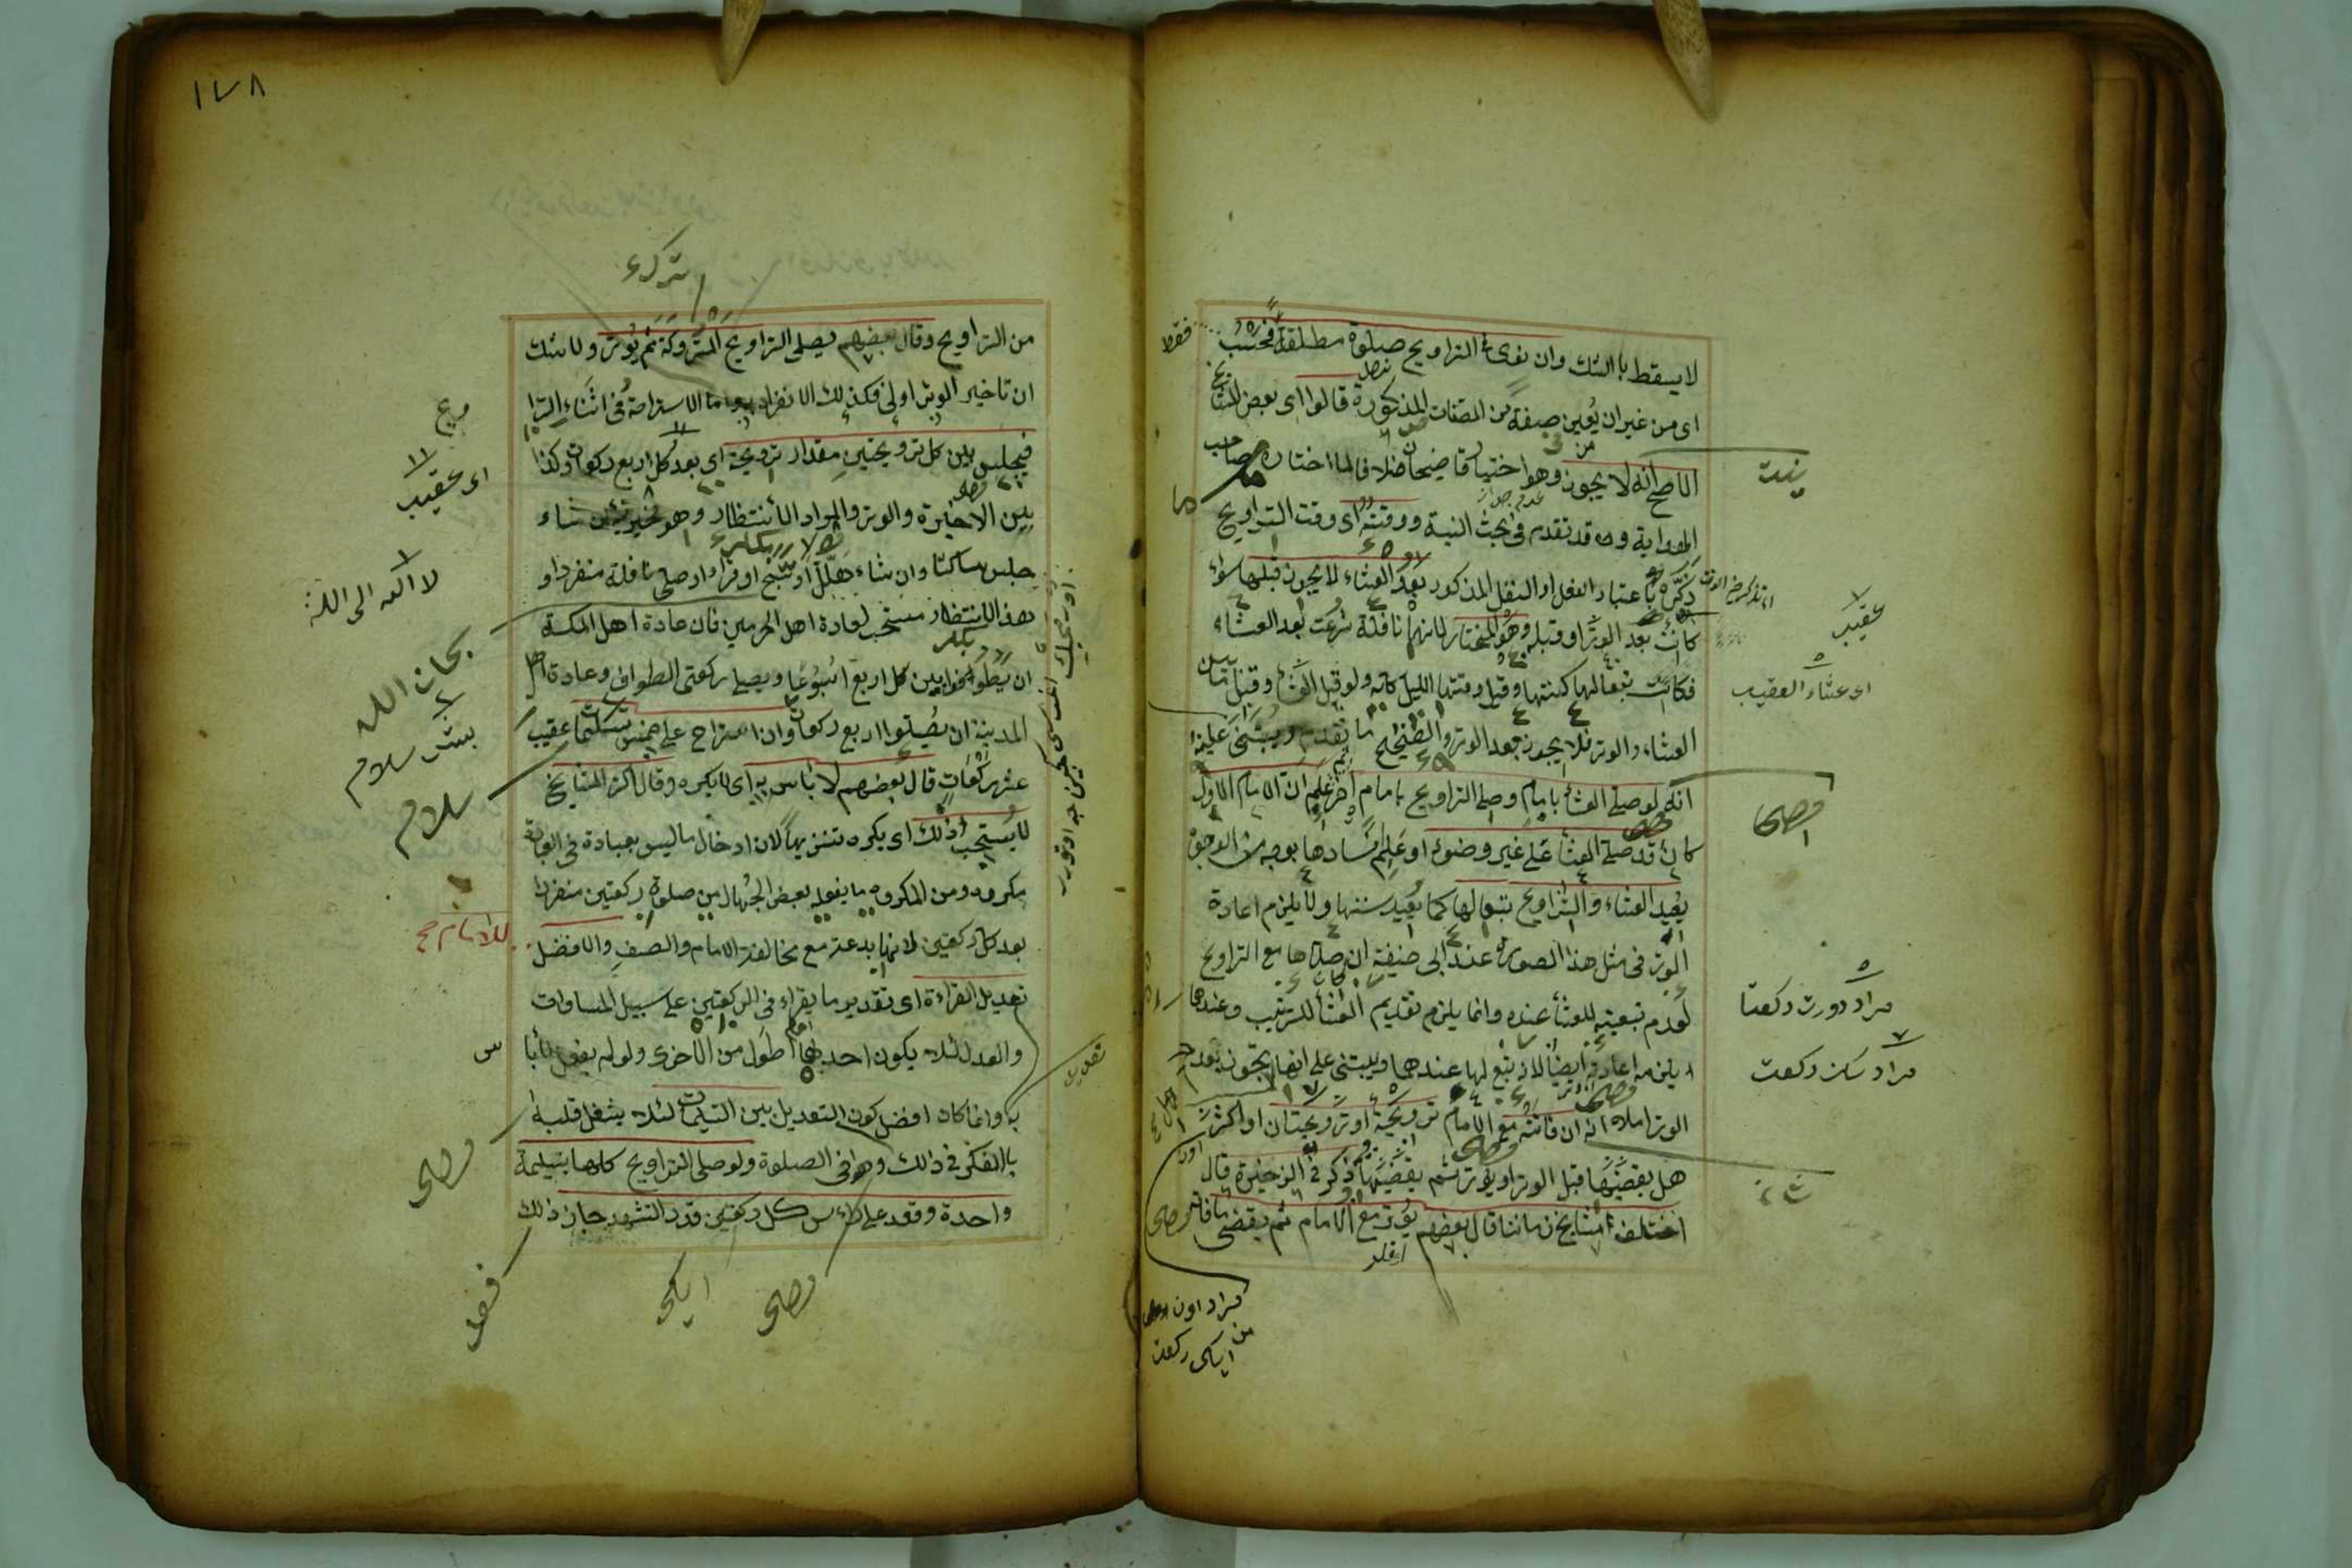 لا يسقط بالشك وان نوى في التراويح صلوة مطلقة فحسب
اى من غير ان يعين صفة من الصفات المذكورة قالوا اى بعض المشايخ
الاصح انه لا يجوز وهو اختيار قاضيخان خلافا لما اختاره صاحب
الهداية وقد تقدم فى بحث النية ووقتها اى وقت التراويح
ذكره باعتبار الفعل او النفل المذكور بعد العشاء لا يجوز قبلها سواء
كانت بعد الوتر او قبله وهو المختار لانها نافلة شرعت بعد العشاء
فكانت تبعا لها كسنتها وقيل وقتها الليل كله ولو قبل العشاء وقيل ما بين
العشاء والوتر فلا يجوز بعد الوتر والصحيح ما تقدم ويبتنى عليه
انه لو صلى العشاء بامام وصلى التراويح بامام اخر ثم علم ان الامام الاول
كان قد صلى العشاء على غير وضوء او علم فسادها بوجه من الوجوه
يعيد العشاء والتراويح تبعا لها كما يعيد سنتها ولا يلزم اعادة
الوتر فى مثل هذا الصورة عند ابى حنيفة ان صلاها مع التراويح
لعدم تبعيته للعشاء عنده وانما يلزم تقديم العشاء للترتيب وعندهما
يلزمه اعادته ايضا لانه تبع لها عندهما ويبتنى على انها تجوز بعد
الوتر ام لا انه ان فاتته مع الامام ترويحة او ترويحتان او اكثر
هل يقضيها قبل الوتر او يوتر ثم يقضيها ذكر فى الذخيرة قال
اختلف مشايخ زماننا قال بعضهم يوتر مع الامام ثم يقضى ما فاته
فقط
عقيب
اى عشاء العقيب
مراد دورت ركعت
مراد سكز ركعت
مراد اون
ايكى ركعت
١٧٨
من التراويح وقال بعضهم يصلى التراويح المتروكة ثم يوتر ولا شك
ان تاخير الوتر اولى فكذلك الانفراد بها واما الاستراحة فى اثناء الترا
فيجلس بين كل ترويحتين مقدار ترويحة اى بعد كل اربع ركعات وكذا
بين الاخيرة والوتر والمراد الانتظار وهو مخير فيه ان شاء
جلس ساكتا وان شاء هلل او سبح او قرأ او صلى نافلة منفردا و
هذا الانتظار مستحب لعادة اهل الحرمين فان عادة اهل المكة
ان يطوفوا بين كل اربع اسبوعا ويصلى ركعتى الطواف وعادة اهل
المدينة ان يصلوا اربع ركعات وان استراح على خمس تسليمات عقيب
عشر ركعات قال بعضهم لا بأس به اى لا يكره وقال اكثر المشايخ
لا يستحب ذلك اى يكره تنزيها لان ادخال ما ليس بعبادة فى العبادة
مكروه ومن المكروه ما يفعله بعض الجهال من صلوة ركعتين منفردا
بعد كل ركعتين لانها بدعة مع مخالفة الامام والصف والافضل
تعديل القراءة اى تقدير ما يقراء فى الركعتين على سبيل المساوات
والعدل لئلا يكون احديهما اطول من الاخرى ولو لم يفعل لا بأ
به وانما كان افضل كون التعديل بين التسليمات لئلا يشغل قلبه
بالفكر فى ذالك وهو فى الصلوة ولو صلى التراويح كلها بتسليمة
واحدة وقعد على رأس كل ركعتين قدر التشهد جاز ذالك
اى عقيب
لا اله الى الله
سبحان الله
بش سلام
سلام
للامام
س
ايكى